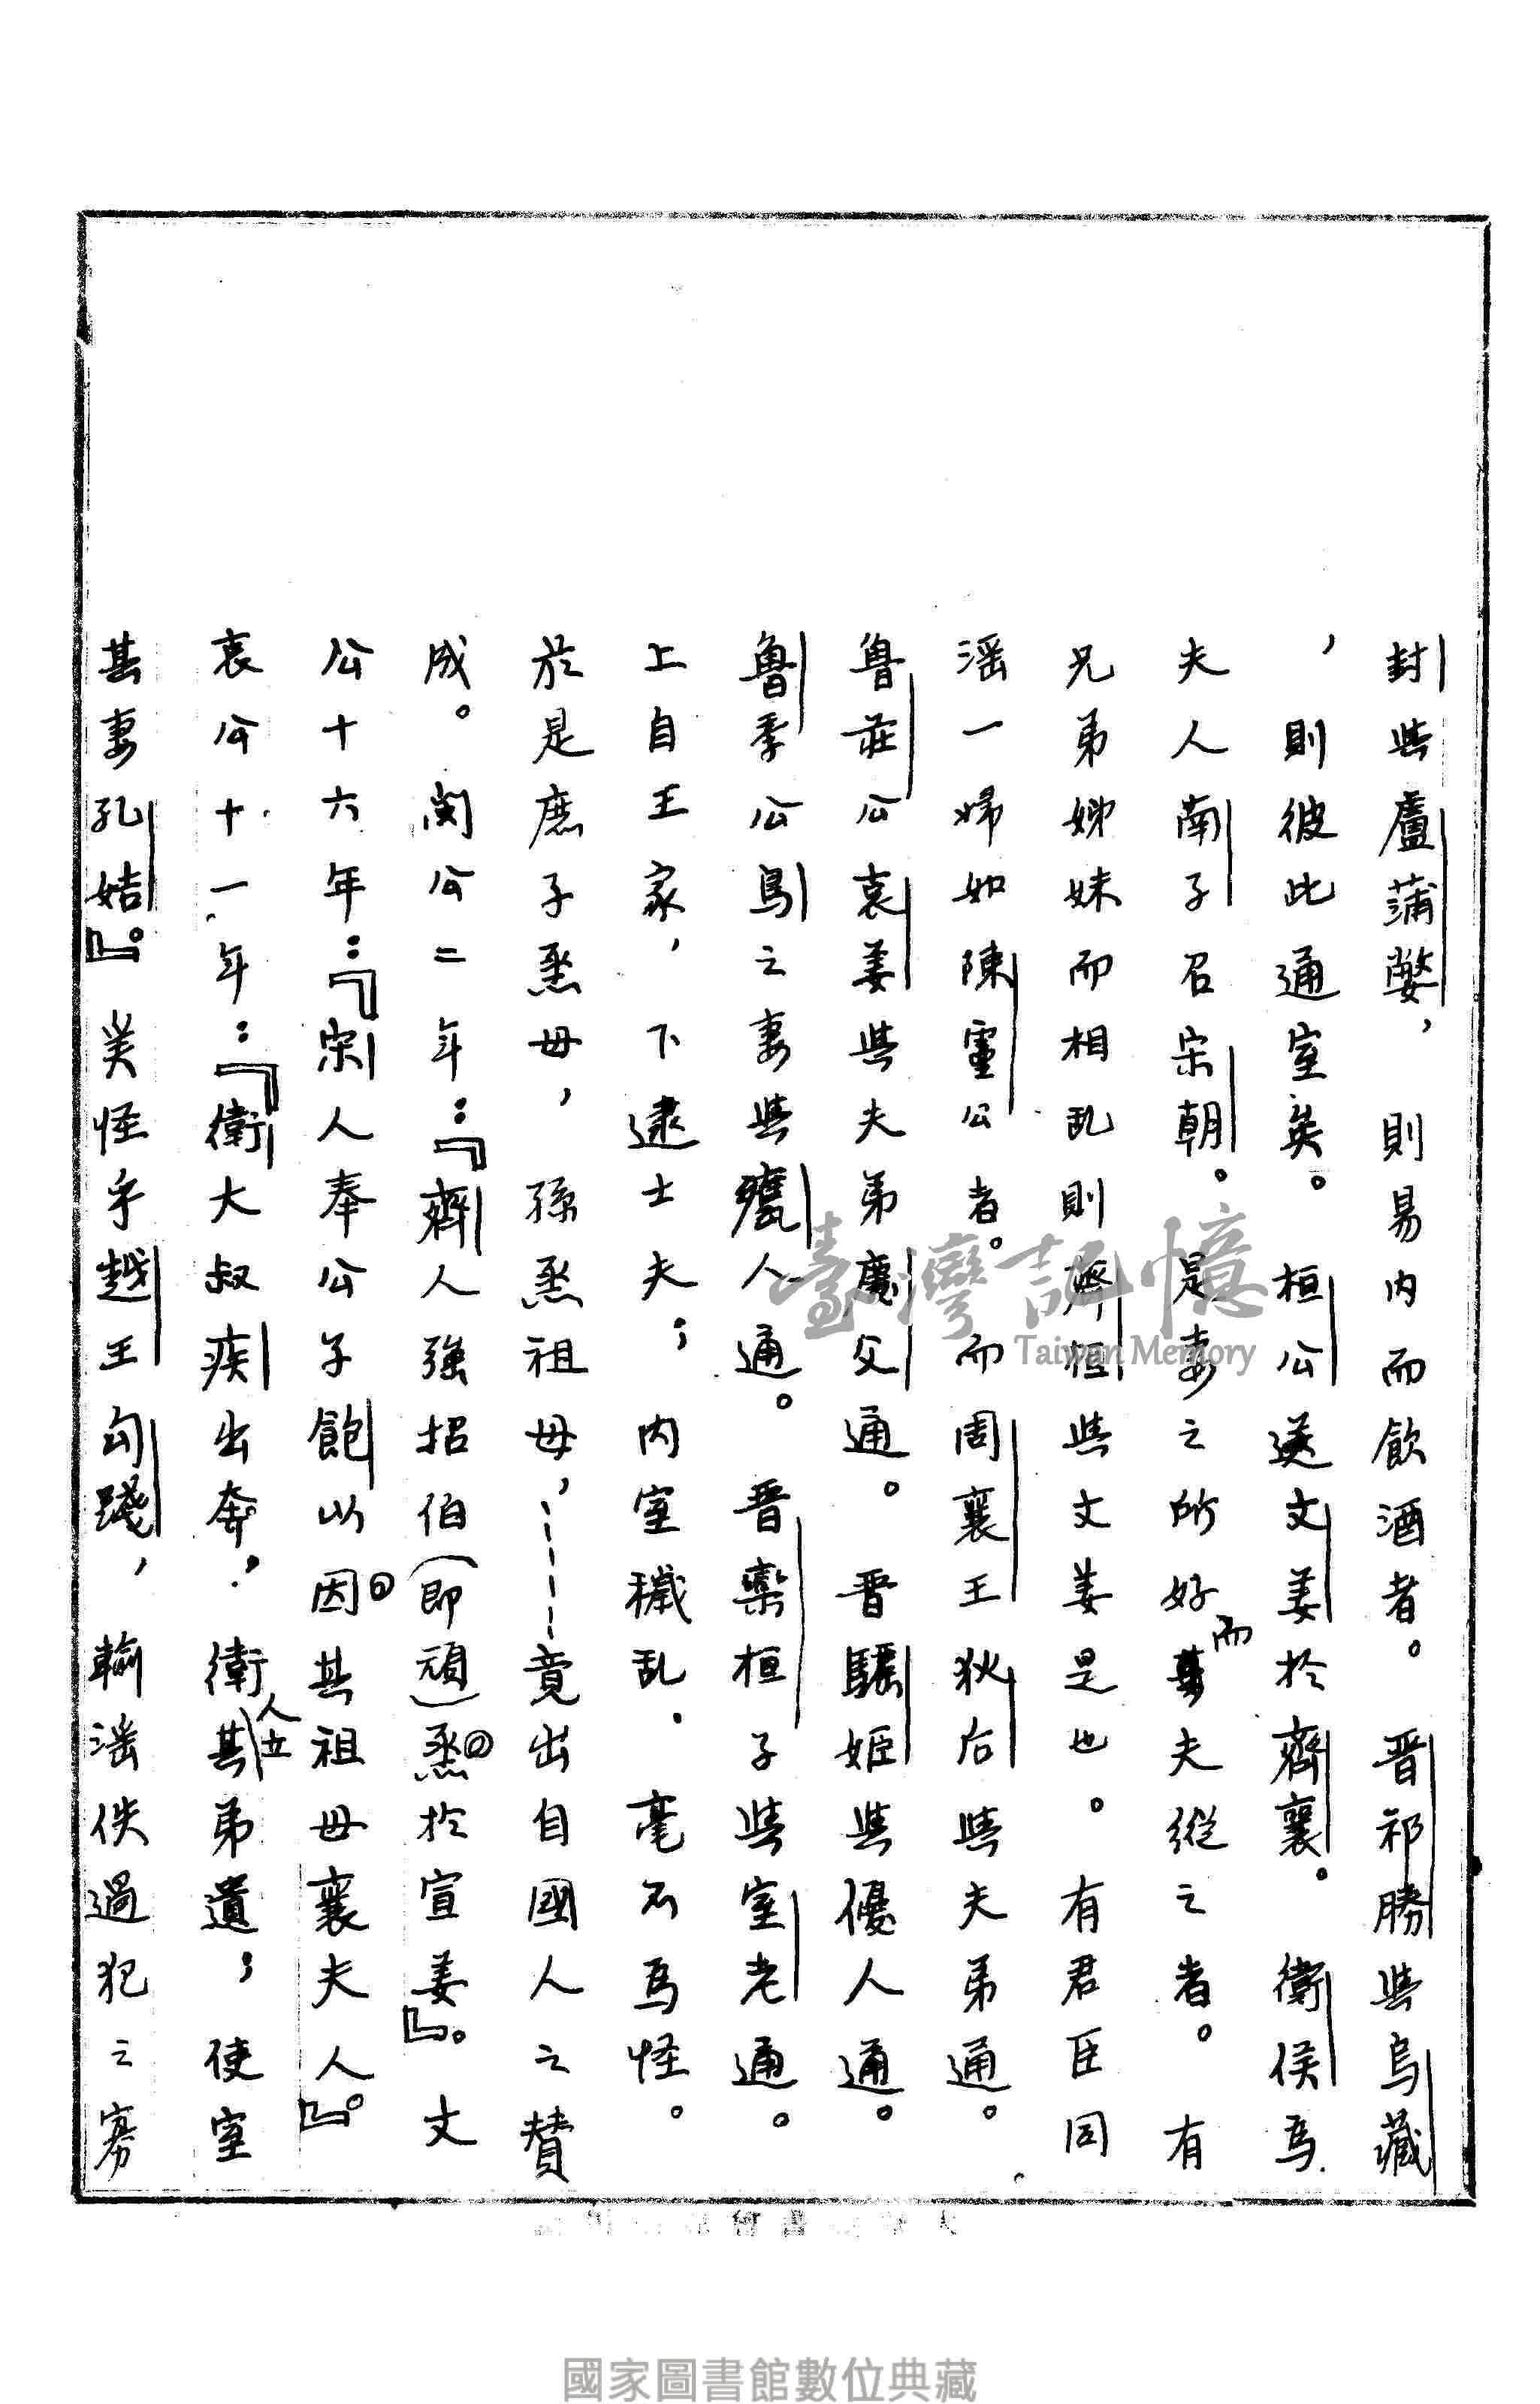 封与盧蒲嫳，則易內而飲酒者。晋祁勝与烏藏
，則彼此通室矣。桓公送文姜於齊襄。衛侯為
夫人南子召宋朝。是妻之所好而夫縱之者。有
兄弟姊妹而相乱則齊桓与文姜是也。有君臣同
滛一婦如陳靈公者。而周襄王狄后与夫弟通。
魯莊公哀姜与夫弟慶父通。晋驪姬与優人通。
魯季公鳥之妻与饔人通。晋欒桓子与室老通。
上自王家，下逮士夫；內室穢乱．毫不為怪。
於是庶子烝母，孫烝祖母，-----竟出自國人之贊
成。閔公二年：『齊人強招伯(即頑)烝於宣姜』。文
公十六年：『宋人奉公子鮑以因其祖母襄夫人』。
哀公十一年：『衛大叔疾出奔，衛人立其弟遺；使室
其妻孔姞』。奚怪乎越王勾踐，輸滛佚過犯之寡
臺灣記憶
Taiwan Memory
國家圖書館數位典藏